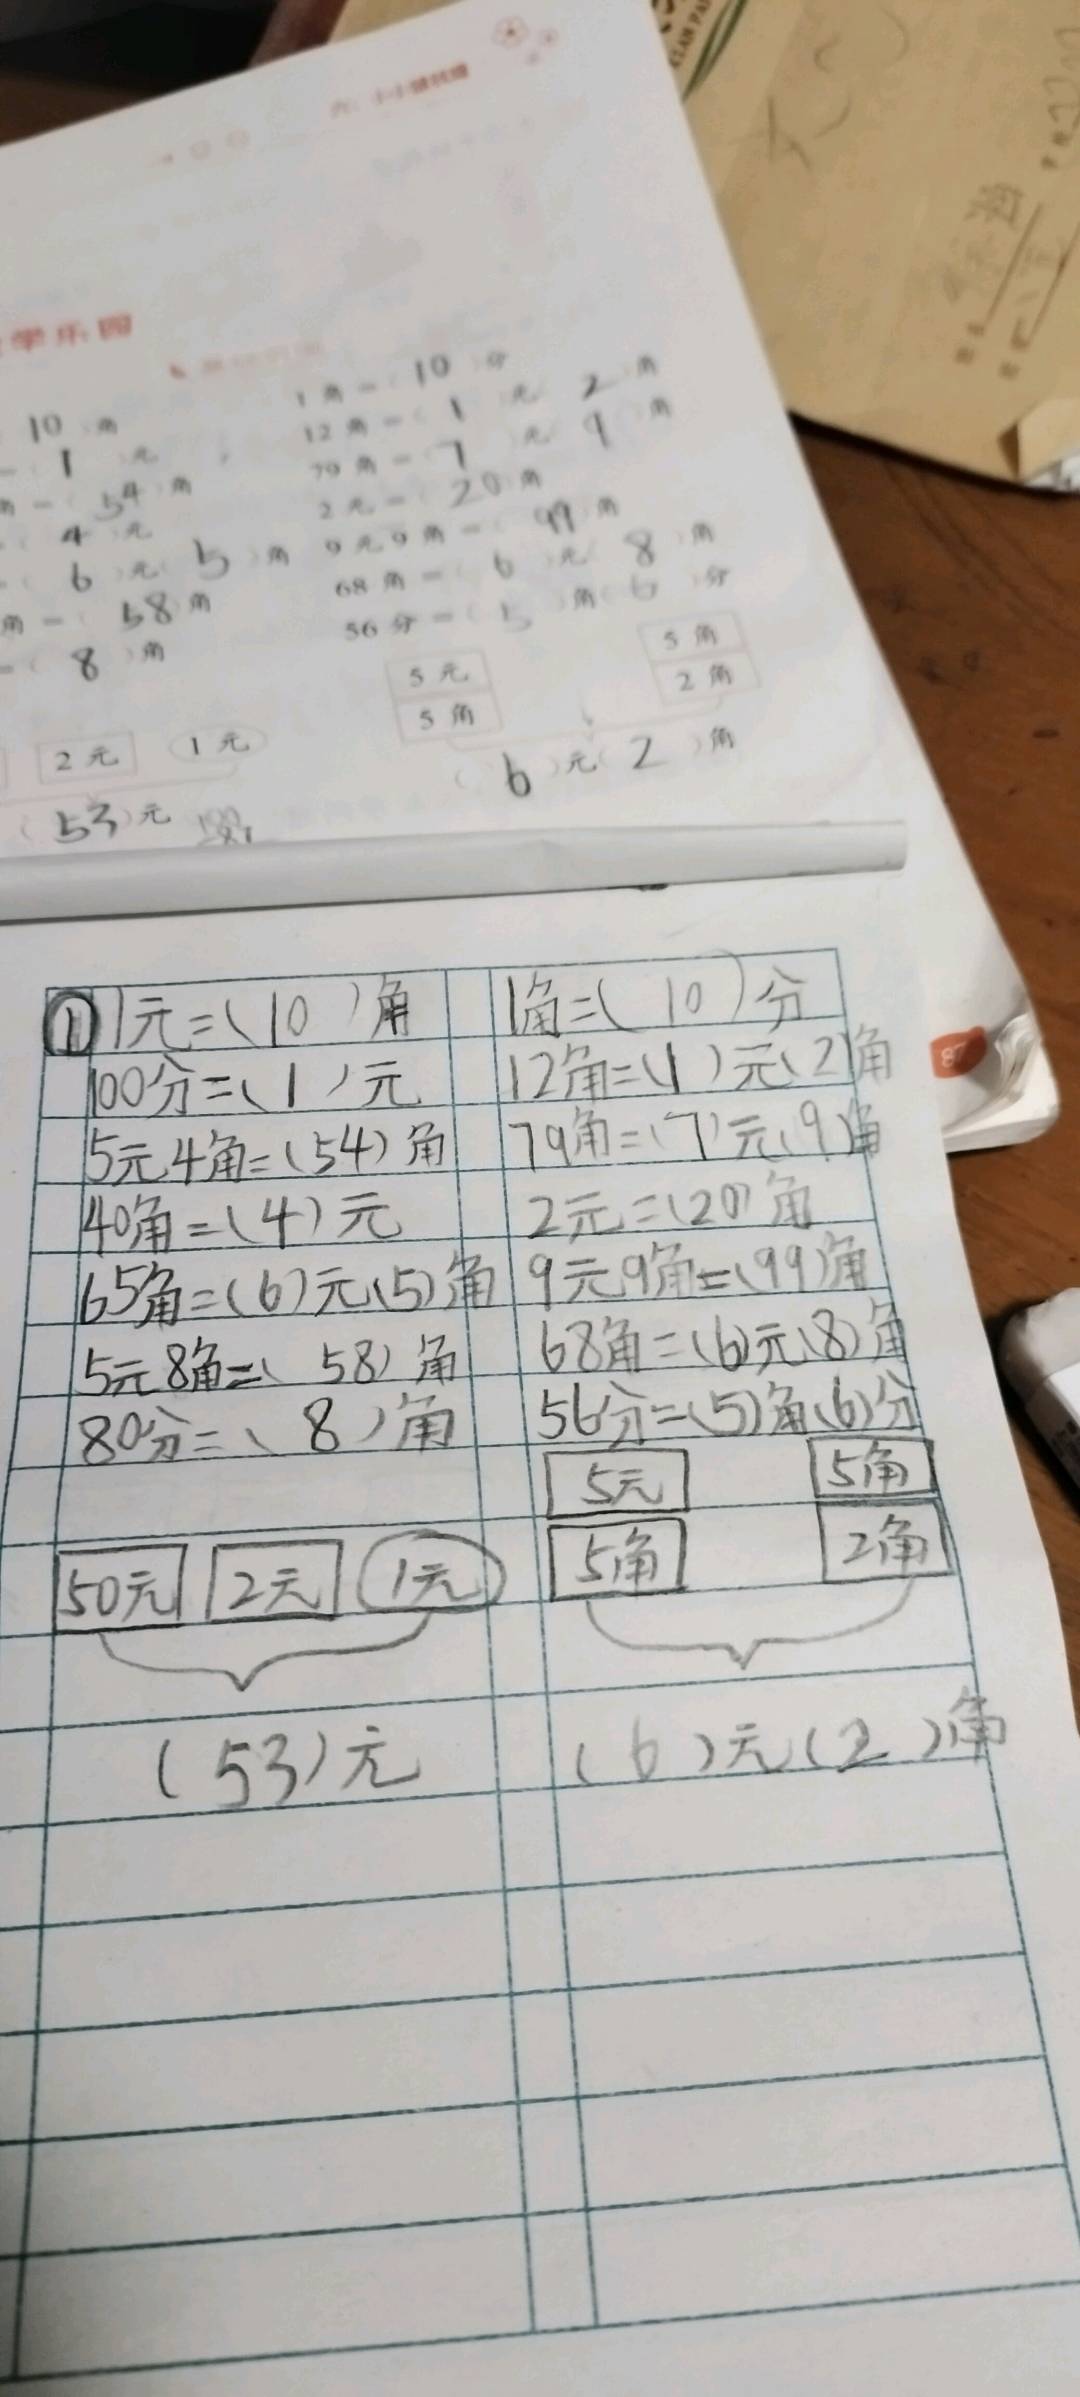 学乐园
10 角
1角=(10)分
=(1)元
12角=(1)元(2)角
角=(54)角
79角=(7)元(9)角
=(4)元
2元=(20)角
=(6)元(5)角
9元9角=(99)角
角=(58)角
68角=(6)元(8)角
=(8)角
56分=(5)角(6)分
5元 5角
5角 2角
2元 1元
(6)元(2)角
(53)元
87
① 1元=(10)角
1角=(10)分
100分=(1)元
12角=(1)元(2)角
5元4角=(54)角
79角=(7)元(9)角
40角=(4)元
2元=(20)角
65角=(6)元(5)角
9元9角=(99)角
5元8角=(58)角
68角=(6)元(8)角
80分=(8)角
56分=(5)角(6)分
5元 5角
50元 2元 1元
5角 2角
(53)元
(6)元(2)角